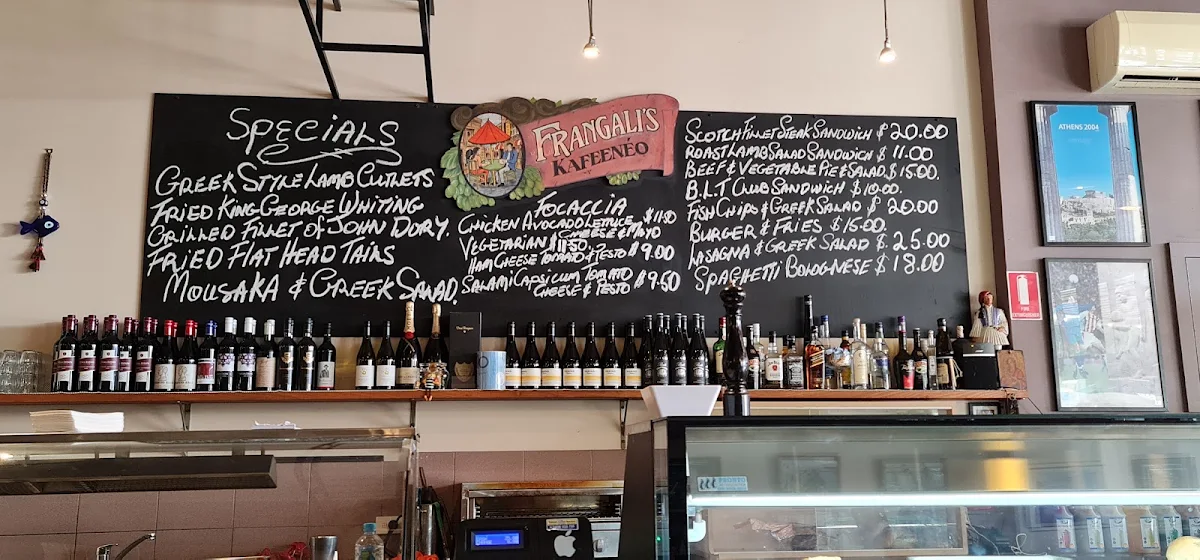 SPECIALS
GREEK STYLE LAMB CUTLETS
FRIED KING GEORGE WHITING
GRILLED FILLET OF JOHN DORY.
FRIED FLAT HEAD TAILS
MOUSAKA & GREEK SALAD.
FRANGALI'S
KAFEENEO
FOCACCIA
CHICKEN AVOCADO LETTUCE $11.50
CHEESE & MAYO
VEGETARIAN $11.50
HAM CHEESE TOMATO & PESTO $9.00
SALAMI CAPSICUM TOMATO
CHEESE & PESTO $9.50
SCOTCH FILLET STEAK SANDWICH $20.00
ROAST LAMB SALAD SANDWICH $11.00
BEEF & VEGETABLE PIE & SALAD $15.00.
B.L.T CLUB SANDWICH $10.00.
FISH CHIPS & GREEK SALAD $20.00
BURGER & FRIES $15.00.
LASAGNA & GREEK SALAD $25.00
SPAGHETTI BOLOGNESE $18.00
ATHENS 2004
FIRE
EXTINGUISHER